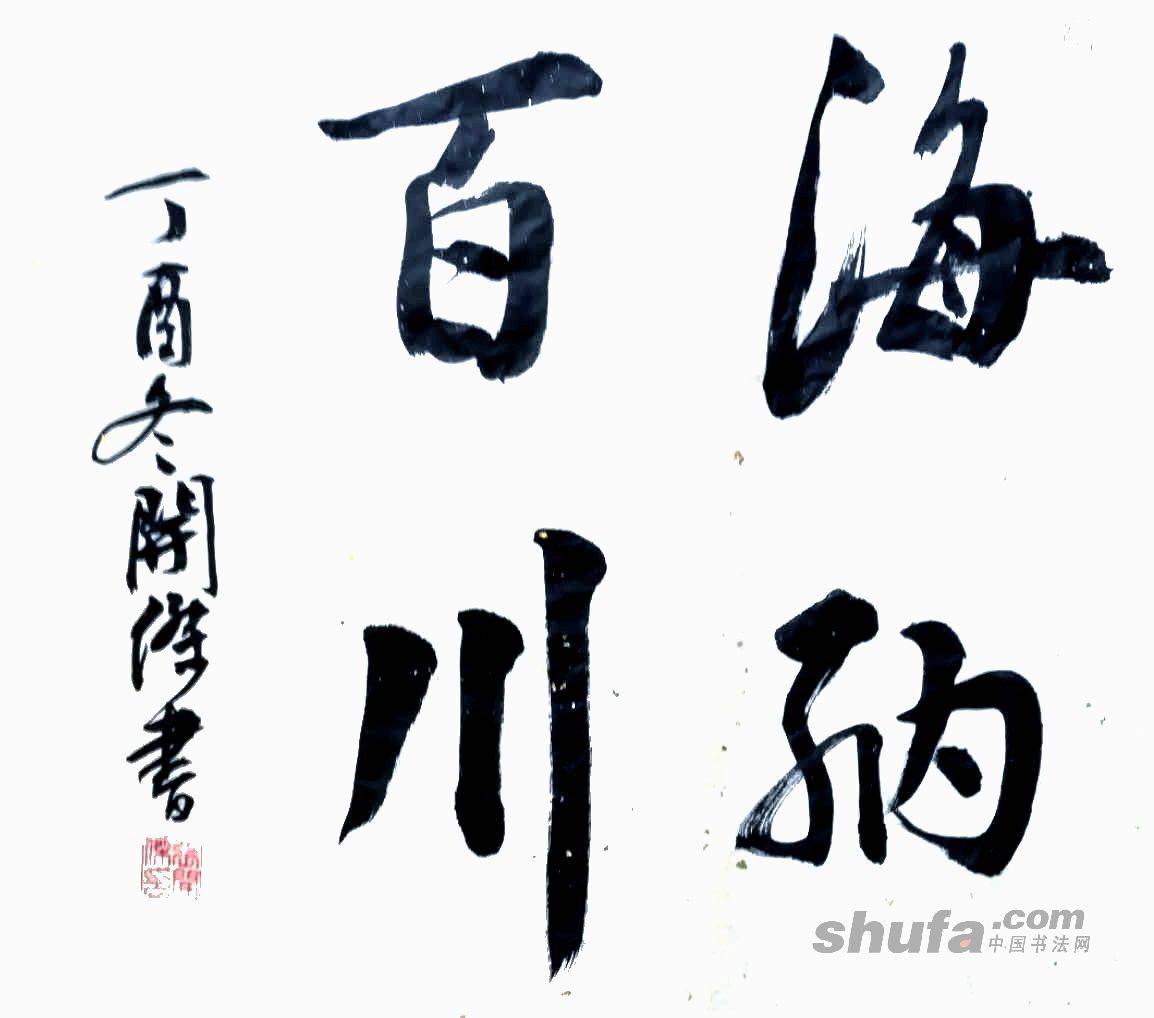 海納
百川
丁酉冬開傑書
shufa.com
中国书法网